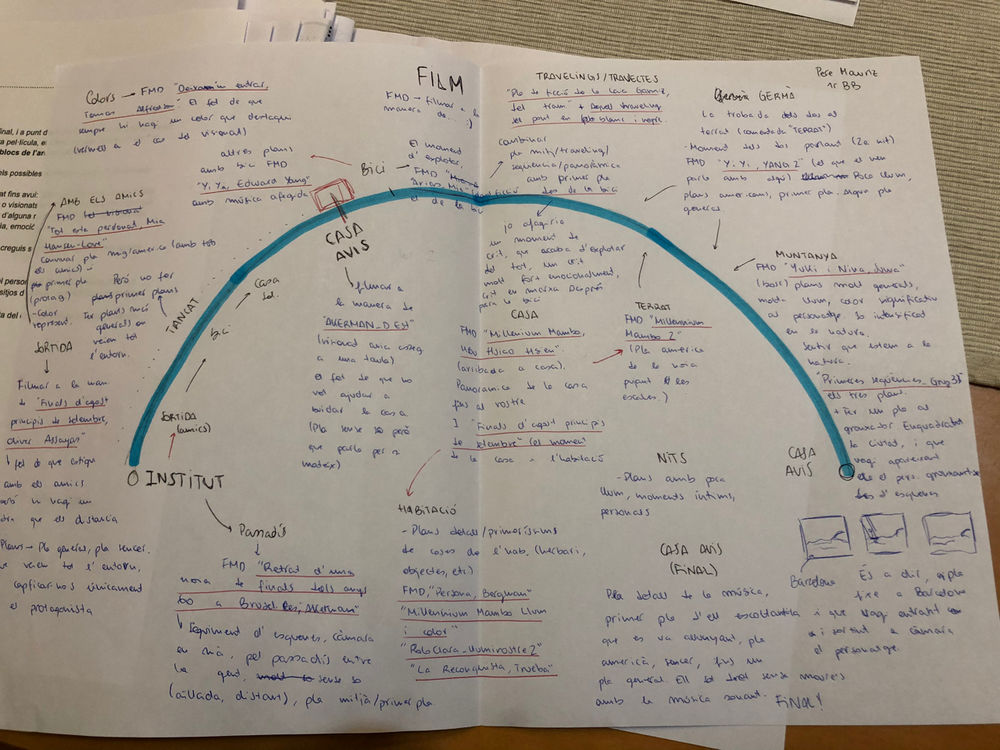 FILM
Colors → FMD "Deixa'm entrar,
Tomas Alfredson" El fet de que
sempre hi hagi un color que destaqui
(vermell a el cas del visionat)
altres plans
amb bici FMD
"Yi, Yi, Edward Yang"
amb música afegida
Bici
FMD → filmar a la
manera de... :)
El moment
d'explotar,
FMD
de la bici
TRAVELINGS/TRAVECTES
"Pla de ficció de la
del tram" + Aquest traveling
del pont en foto blanc i negre.
combinar
pla mitg/traveling/
seqüencia/panoràmica
amb primer pla
des de la bici
jo afagiria
un moment de
crit, que acaba d'explotar
del tot, un crit
molt fort emocionalment,
crit en marxa després
para la bici
Pere Mauriz
1r BB
GERMÀ
La trobada dels dos al
terrat (comentada "TERRAT")
-Moment dels dos parlant (2a nit)
FMD "Yi, Yi, YANG 2" (el que el veu
parla amb algú) Poca llum,
plans americans, primer pla. Algun pla
general.
AMB ELS AMICS
FMD
"Tot està perdonat, Mia
Hansen-Love"
Canviar pla mig/americà (amb tots
els amics) -
primer pla
(protag.)
-Color
represent.
Però no fer
plans primer plans
Fer plans més
generals on
veiem tot
l'entorn.
TANCAT
bici
casa
SORTIDA
(amics)
SORTIDA
Filmar a la man.
de "Finals d'agost
principis de setembre,
Oliver Assayas"
↳ fet de que estigui
amb els amics
però hi hagi un
que els distancia
Plans → Pla general, pla sencer.
veiem tot l'entorn,
capficar-nos únicament
el protagonista
INSTITUT
CASA
AVIS
filmar a
la manera de
"AKERMAN_D'EST"
(visionat avia asseg
a una taula)
El fet de que no
vol ajudar a
buidar la casa
(Pla sense so però
que parla per si
mateix)
CASA
FMD "Millenium Mambo,
Hou Hsiao Hsien"
(arribada a casa).
Panoràmica de la casa
fins al rostre
I "Finals d'agost principis
de setembre" (el moment
de la casa a l'habitació
TERRAT
FMD "Millennium
Mambo 2"
(Pla americà
de la noia
pujant les
escales.)
MUNTANYA
FMD "Yuki i Nina, Suwa"
(bosc) plans molt generals,
molta llum, color significatiu
al personatge. So intensificat
en la natura.
Sentir que estem a la
natura.
"Primeres seqüències Grup 3"
els tres plans.
+ Fer un pla al
gronxador Enquadrat
la ciutat, i que
vagi apareixent
el pers. gronxant-se
d'esquenes
CASA
AVIS
NITS
-Plans amb poca
llum, moments íntims,
personals
Passadís
FMD "Retrat d'una
noia de finals dels anys
60 a Brussel·les, Akerman"
↳ Seguiment d'esquenes, càmara
en mà, pel passadís entre
la gent. sense so
(aïllada, distant), pla mitjà/primer pla
HABITACIÓ
- Plans detall/primeríssims
de coses de l'hab. (herbari,
objectes, etc)
FMD, "Persona, Bergman"
"Millennium Mambo Llum
i color"
"La Reconquista, Trueba"
CASA AVIS
(FINAL)
Pla detall de la música,
primer pla d'ell escoltant-la
que es va allunyant, pla
americà, sencer, fins un
pla general. Ell tot sense moure's
amb la música sonant. FINAL!
Barcelona
És a dir, pla
fixe a Barcelona
i que vagi entrant
i sortint a càmara
el personatge.